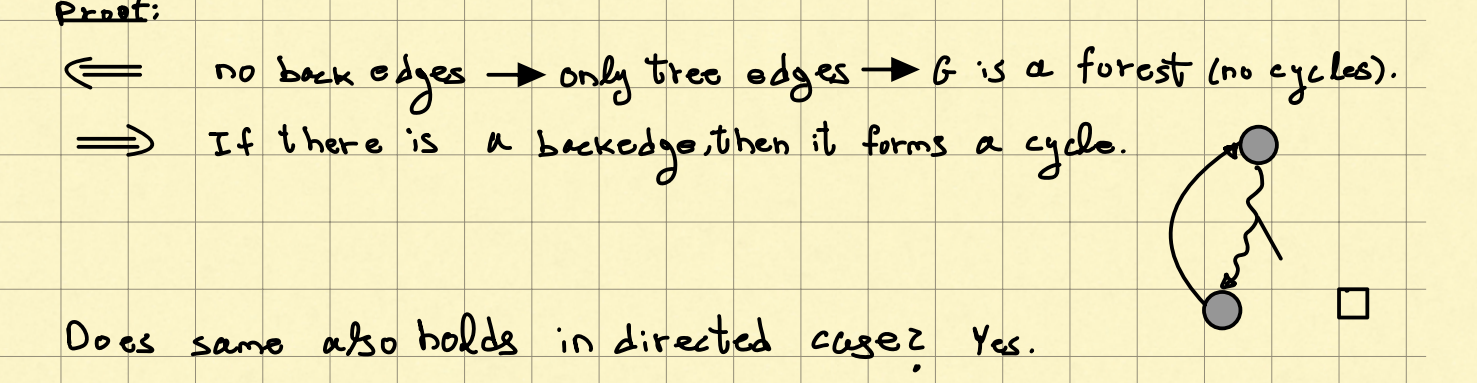 Proof:
⇐ no back edges → only tree edges → G is a forest (no cycles).
⇒ If there is a backedge, then it forms a cycle.
Does same also holds in directed case? Yes.